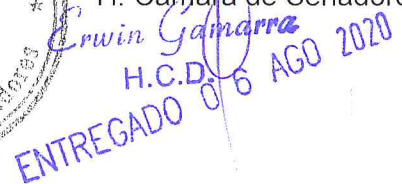 H. Cámara de Senadore
Erwin Gamarra
H.C.D.
ENTREGADO 06 AGO 2020